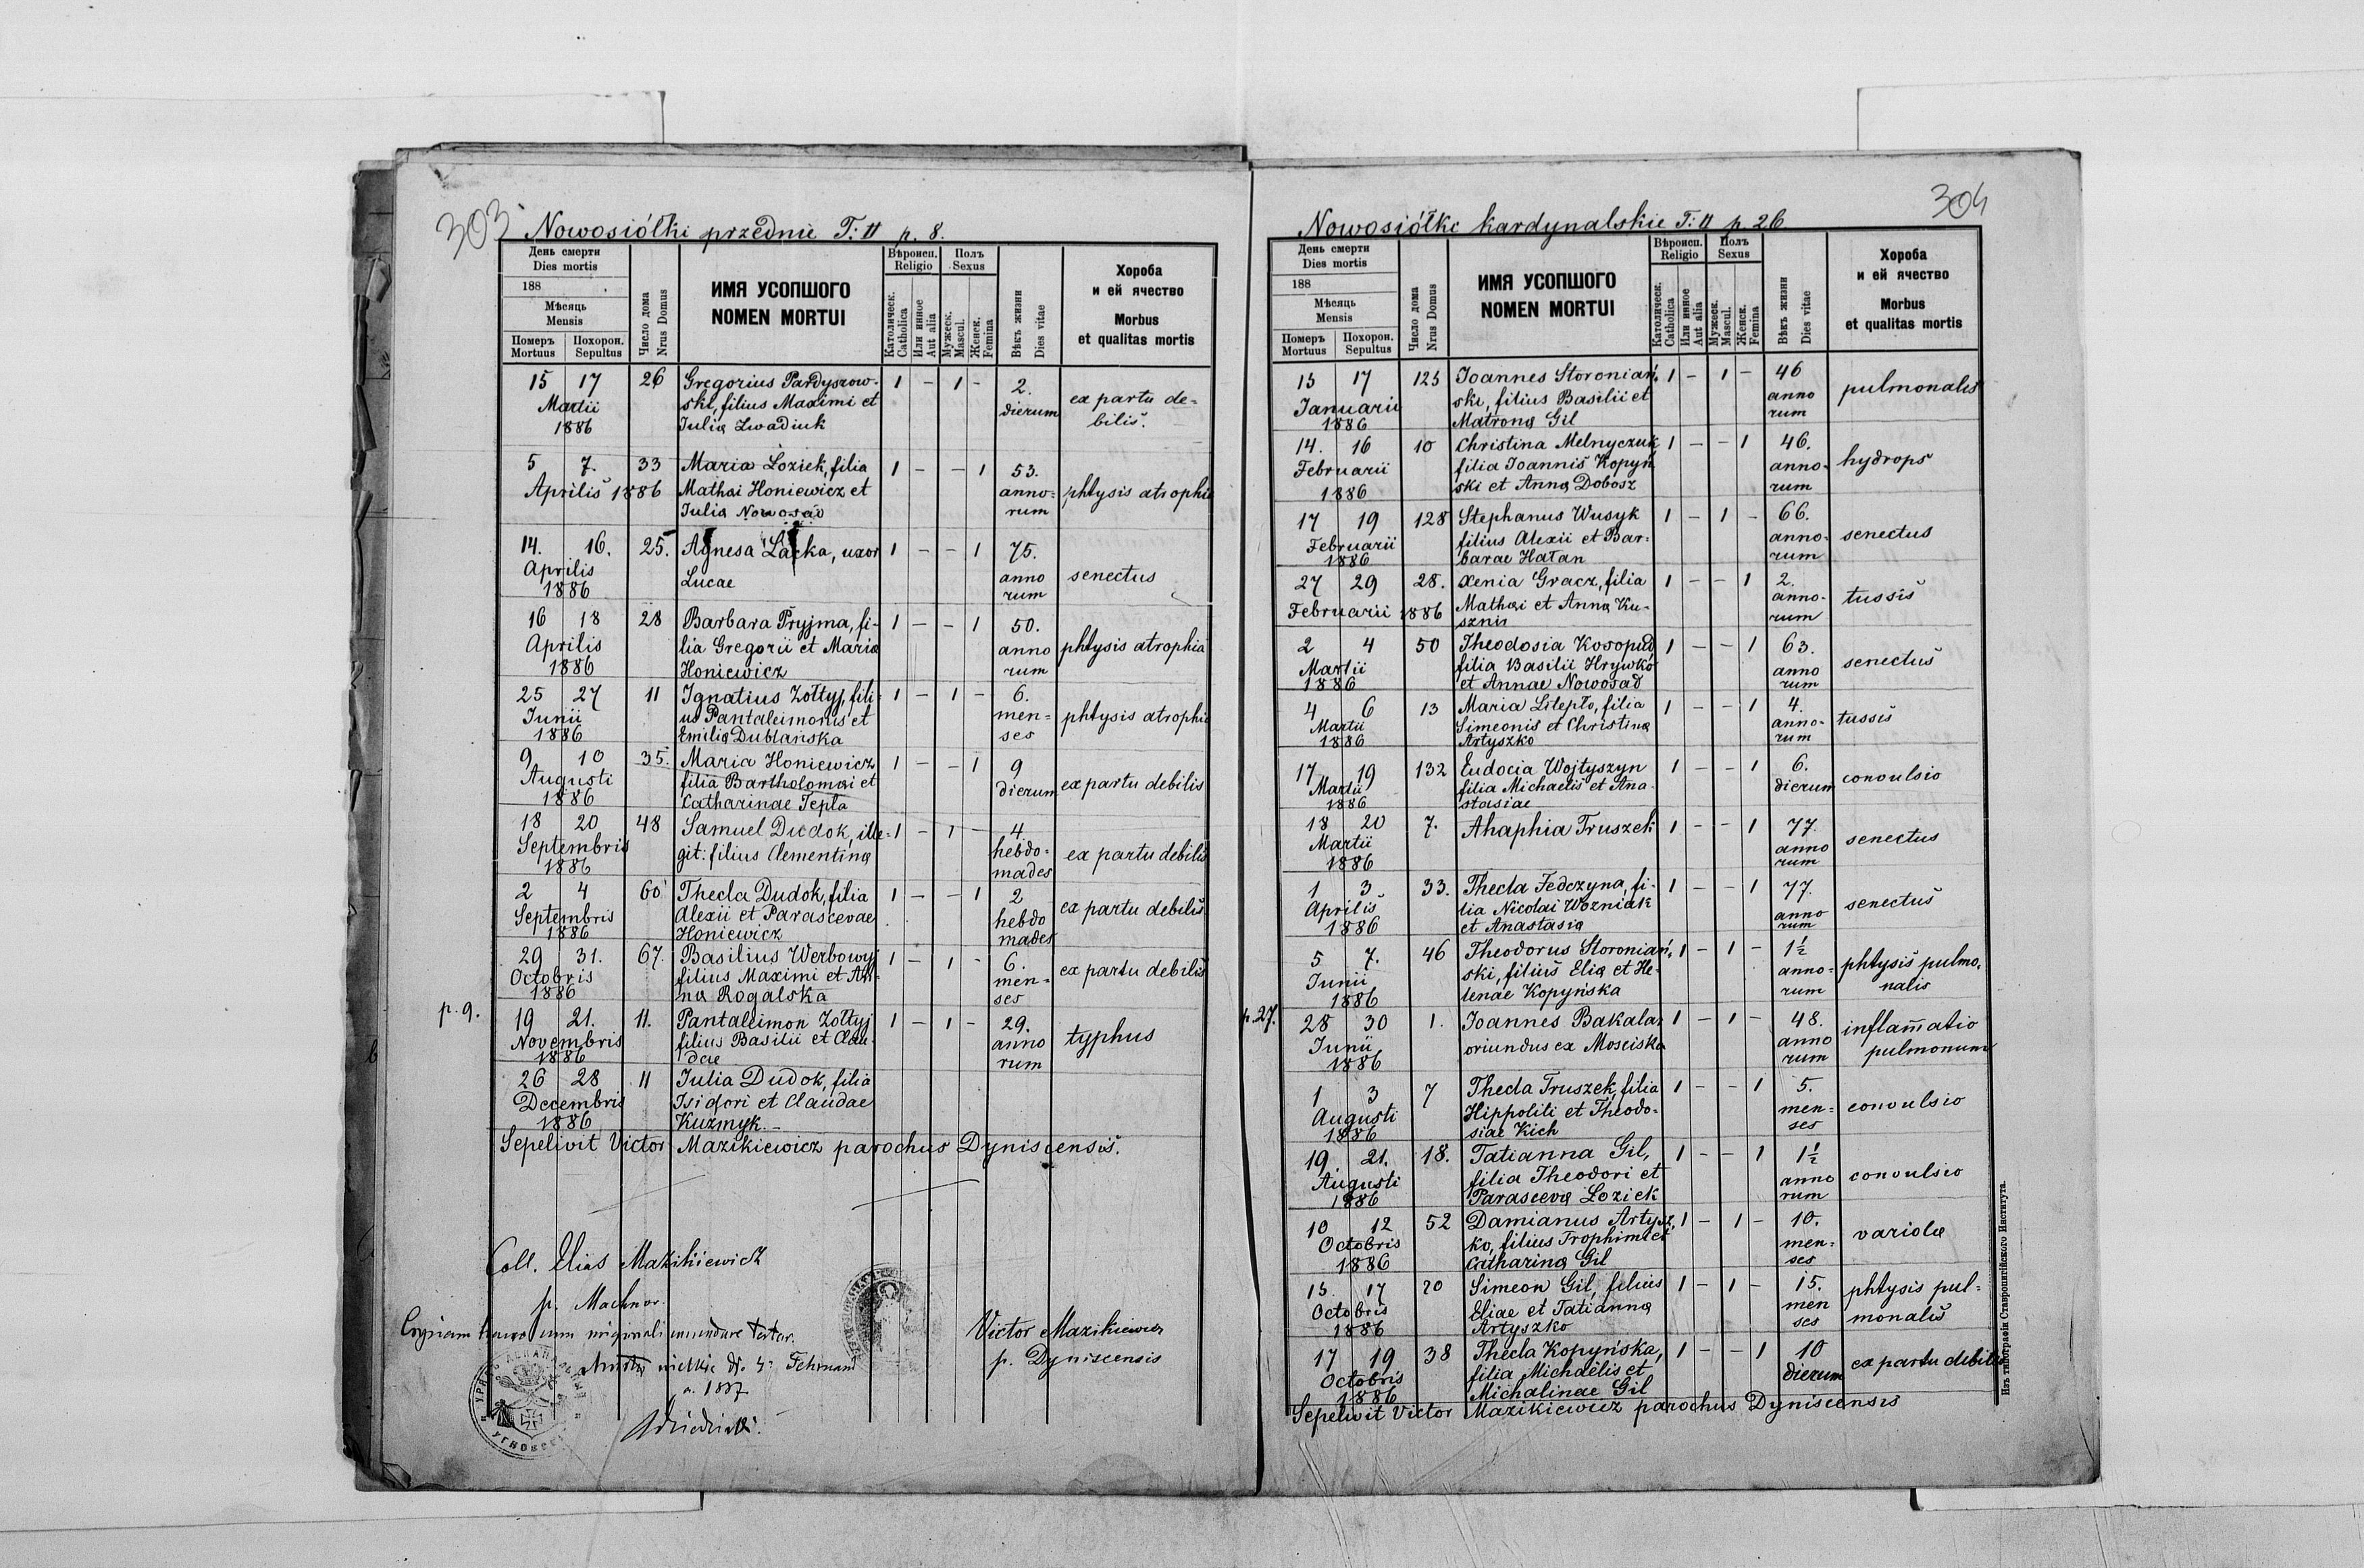 303
Nowosiółki przednie T: II p. 8.
День смерти
Dies mortis
188
Мѣсяць
Mensis
Померъ
Mortuus
Похорон.
Sepultus
Число дома
Nrus Domus
ИМЯ УСОПШОГО
NOMEN MORTUI
Вѣроисп.
Religio
Католическ.
Catholica
Или инное
Aut alia
Полъ
Sexus
Мужеск.
Mascul.
Женск.
Femina
Вѣкъ жизни
Dies vitae
Хороба
и ей ячество
Morbus
et qualitas mortis
15 17 26 Gregorius Pardyszow- 1 – 1 – 2.
Martii ski, filius Maximi et dierum ex partu de=
1886 Julia Zwadiuk bilis.
5 7. 33 Maria Loziek, filia 1 – – 1 53.
Aprilis 1886 Mathai Honiewicz et anno= phtysis atrophia
Julia Nowosad rum
14. 16. 25. Agnesa Lacka, uxor 1 – – 1 75.
Aprilis Lucae anno senectus
1886 rum
16 18 28 Barbara Pryjma, fi- 1 – – 1 50.
Aprilis lia Gregorii et Maria anno phtysis atrophia
1886 Honiewicz rum
25 27 11 Ignatius Zołtyj, fili= 1 – 1 – 6.
Junii us Pantaleimonis et men= phtysis atrophia
1886 Emilia Dublańska ses
9 10 35. Maria Honiewicz 1 – – 1 9
Augusti filia Bartholomai et dierum ex partu debilis
1886 Catharinae Tepla
18 20 48 Samuel Dudok, ille= 1 – 1 – 4
Septembris git: filius Clementina hebdo= ex partu debilis
1886 mades
2 4 60 Thecla Dudok, filia 1 – – 1 2
Septembris Alexii et Parascevae hebdo ex partu debilis
1886 Honiewicz mades
29 31. 67. Basilius Werbowyj 1 – 1 – 6.
Octobris filius Maximi et An- men= ex partu debilis
1886 na Rogalska ses
p. 9. 19 21. 11. Pantaleimon Zołtyj 1 – 1 – 29.
Novembris filius Basilii et Clau- anno typhus
1886 dae rum
26 28 11 Julia Dudok, filia
Decembris Isidori et Claudae
1886 Kuzmyk.–
Sepelivit Victor Mazikiewicz parochus Dyniscensis.
Coll. Elias Mazikiewicz
p. Machnov.
Copiam hanc cum originali
Victor Mazikiewicz
p. Dyniscensis
304
Nowosiółki kardynalskie T: II p. 26
День смерти
Dies mortis
188
Мѣсяць
Mensis
Померъ
Mortuus
Похорон.
Sepultus
Число дома
Nrus Domus
ИМЯ УСОПШОГО
NOMEN MORTUI
Вѣроисп.
Religio
Католическ.
Catholica
Или инное
Aut alia
Полъ
Sexus
Мужеск.
Mascul.
Женск.
Femina
Вѣкъ жизни
Dies vitae
Хороба
и ей ячество
Morbus
et qualitas mortis
15 17 125 Joannes Storoniań- 1 – 1 – 46
Januarii ski, filius Basilii et anno pulmonalis
1886 Matrona Gil rum
14. 16 10 Christina Melnyczuk, 1 – – 1 46.
Februarii filia Joannis Kopyń anno- hydrops
1886 ski et Anna Dobosz rum
17 19 128 Stephanus Wusyk 1 – 1 – 66.
Februarii filius Alexii et Bar= anno- senectus
1886 barae Hatan rum
27 29 28. Xenia Gracz, filia 1 – – 1 2.
Februarii 1886 Mathai et Anna Ku- anno- tussis
sznir rum
2 4 50 Theodosia Kosopud, 1 – – 1 63.
Martii filia Basilii Hrywko anno senectus
1886 et Annae Nowosad rum
4 6 13 Maria Litepło, filia 1 – – 1 4.
Martii Simeonis et Christina anno- tussis
1886 Artyszko rum
17 19 132 Eudocia Wojtyszyn 1 – – 1 6.
Martii filia Michaelis et Ana- dierum convulsio
1886 stasiae
18 20 7. Ahaphia Truszek 1 – – 1 77.
Martii anno senectus
1886 rum
1 3 33. Thecla Fedczyna, fi- 1 – – 1 77.
Aprilis lia Nicolai Wozniak anno senectus
1886 et Anastasia rum
5 7. 46 Theodorus Storoniań- 1 – 1 – 1½
Junii ski, filius Elia et He- anno- phtysis pulmo-
1886 lenae Kopyńska rum nalis
p. 27. 28 30 1. Joannes Bakalar 1 – 1 – 48. inflam̄atio
Junii oriundus ex Mosciska anno pulmonum
1886 rum
1 3 7 Thecla Truszek, filia 1 – – 1 5.
Augusti Hippoliti et Theodo- men= convulsio
1886 siae Kich ses
19 21. 18. Tatianna Gil, 1 – – 1 1½
Augusti filia Theodori et anno convulsio
1886 Parasceva Loziek rum
10 12 52 Damianus Artysz- 1 – 1 – 10.
Octobris ko, filius Trophimi et men= variola
1886 Catharina Gil ses
15 17 20 Simeon Gil, filius 1 – 1 – 15. phtysis pul=
Octobris Eliae et Tatianna men monalis
1886 Artyszko ses
17 19 38 Thecla Kopyńska, 1 – – 1 10
Octobris filia Michaelis et dierum ex partu debilis
1886 Michalinae Gil
Sepelivit Victor Mazikiewicz parochus Dyniscensis
Изъ типографіи Ставропигійского Института.